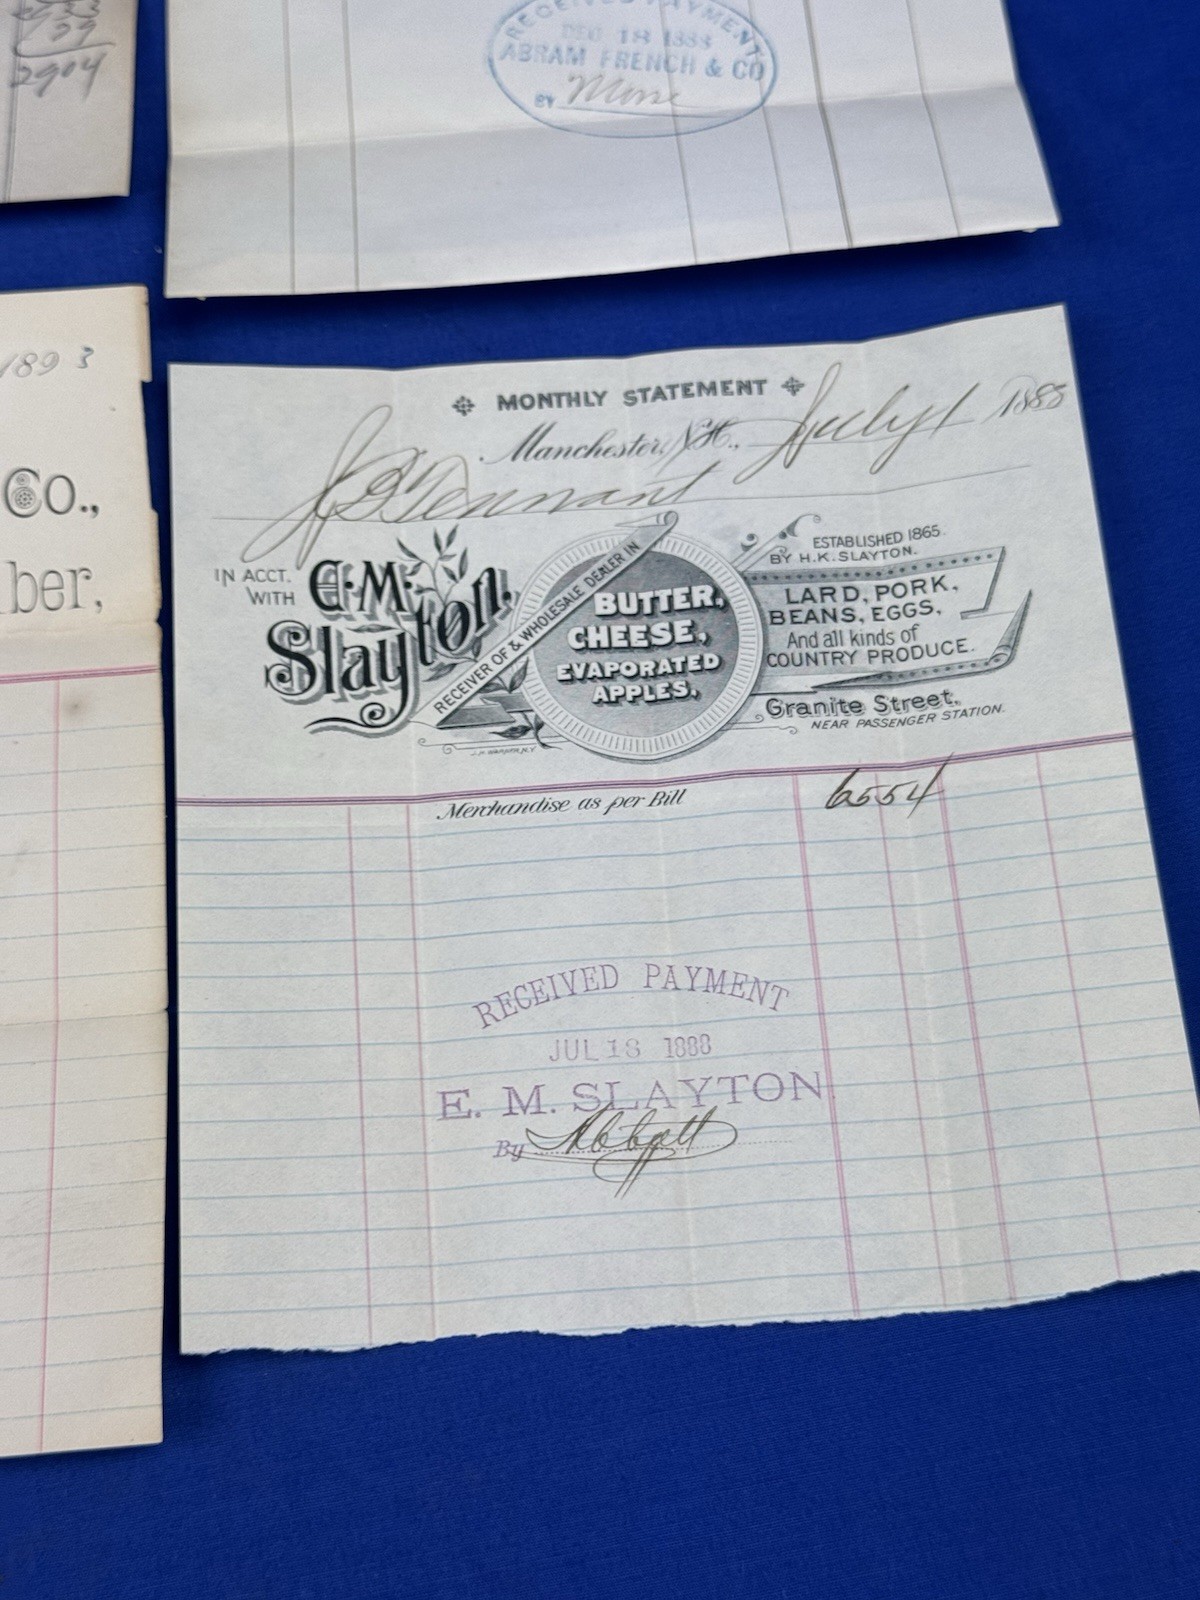 2904
RECEIVED PAYMENT
DEC 18 1888
ABRAM FRENCH & CO
BY
1893
Co.,
ber,
MONTHLY STATEMENT
Manchester, N.H., July 1 1888
J B Tennant
IN ACCT. WITH
E.M. Slayton,
RECEIVER OF & WHOLESALE DEALER IN
BUTTER,
CHEESE,
EVAPORATED
APPLES,
ESTABLISHED 1865.
BY H.K. SLAYTON.
LARD, PORK,
BEANS, EGGS,
And all kinds of
COUNTRY PRODUCE.
Granite Street,
NEAR PASSENGER STATION.
Merchandise as per Bill 6554
RECEIVED PAYMENT
JUL 18 1888
E. M. SLAYTON
By